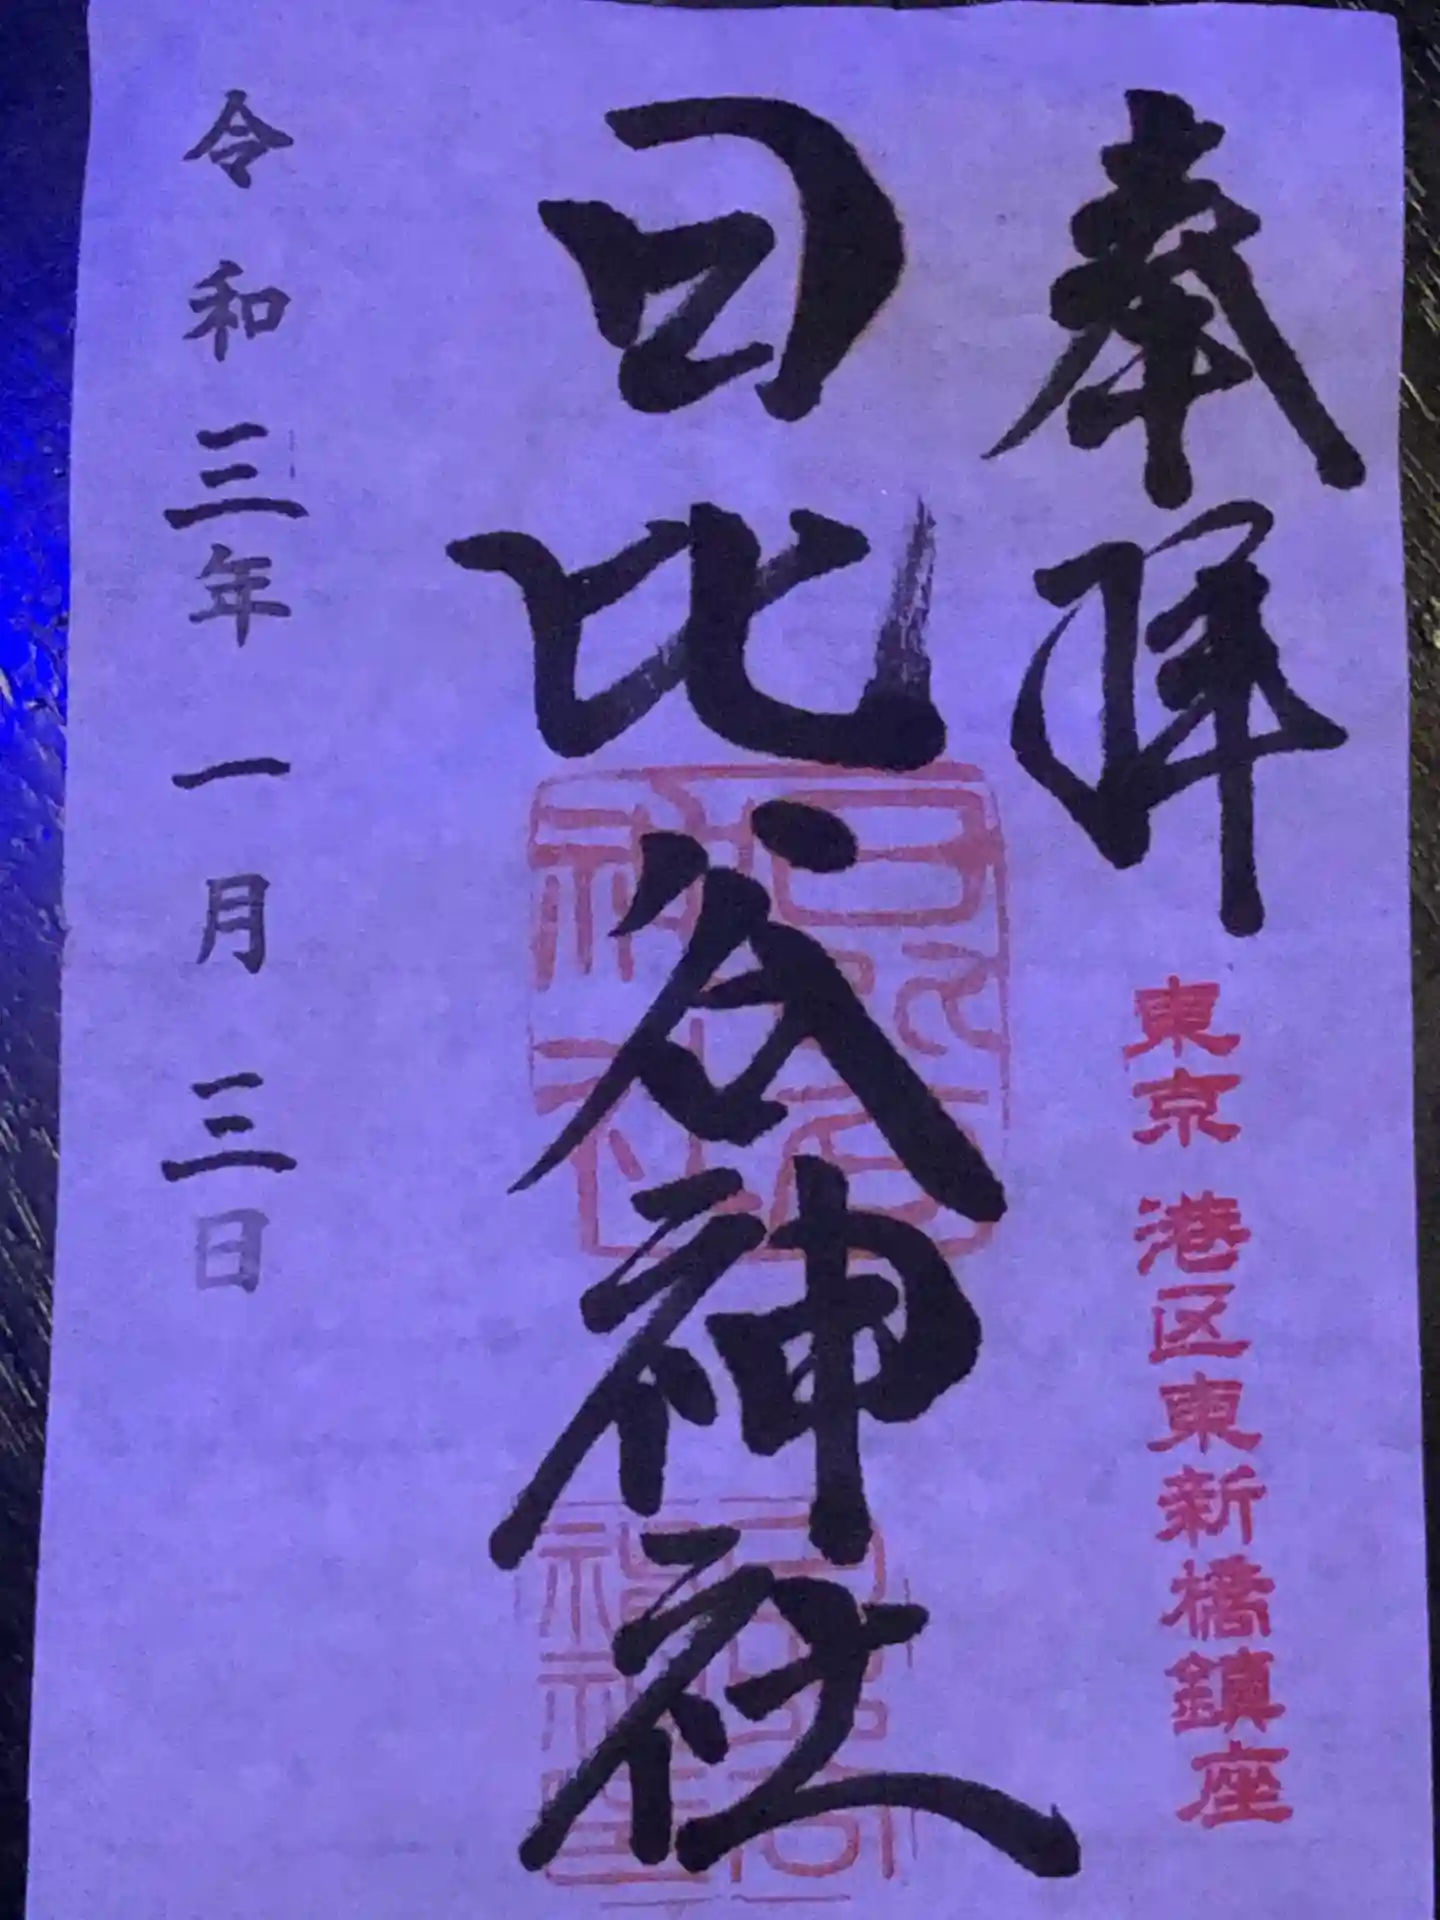 奉拝
東京 港区東新橋鎮座
日比谷神社
日比谷
神社
令和三年 一月 三日